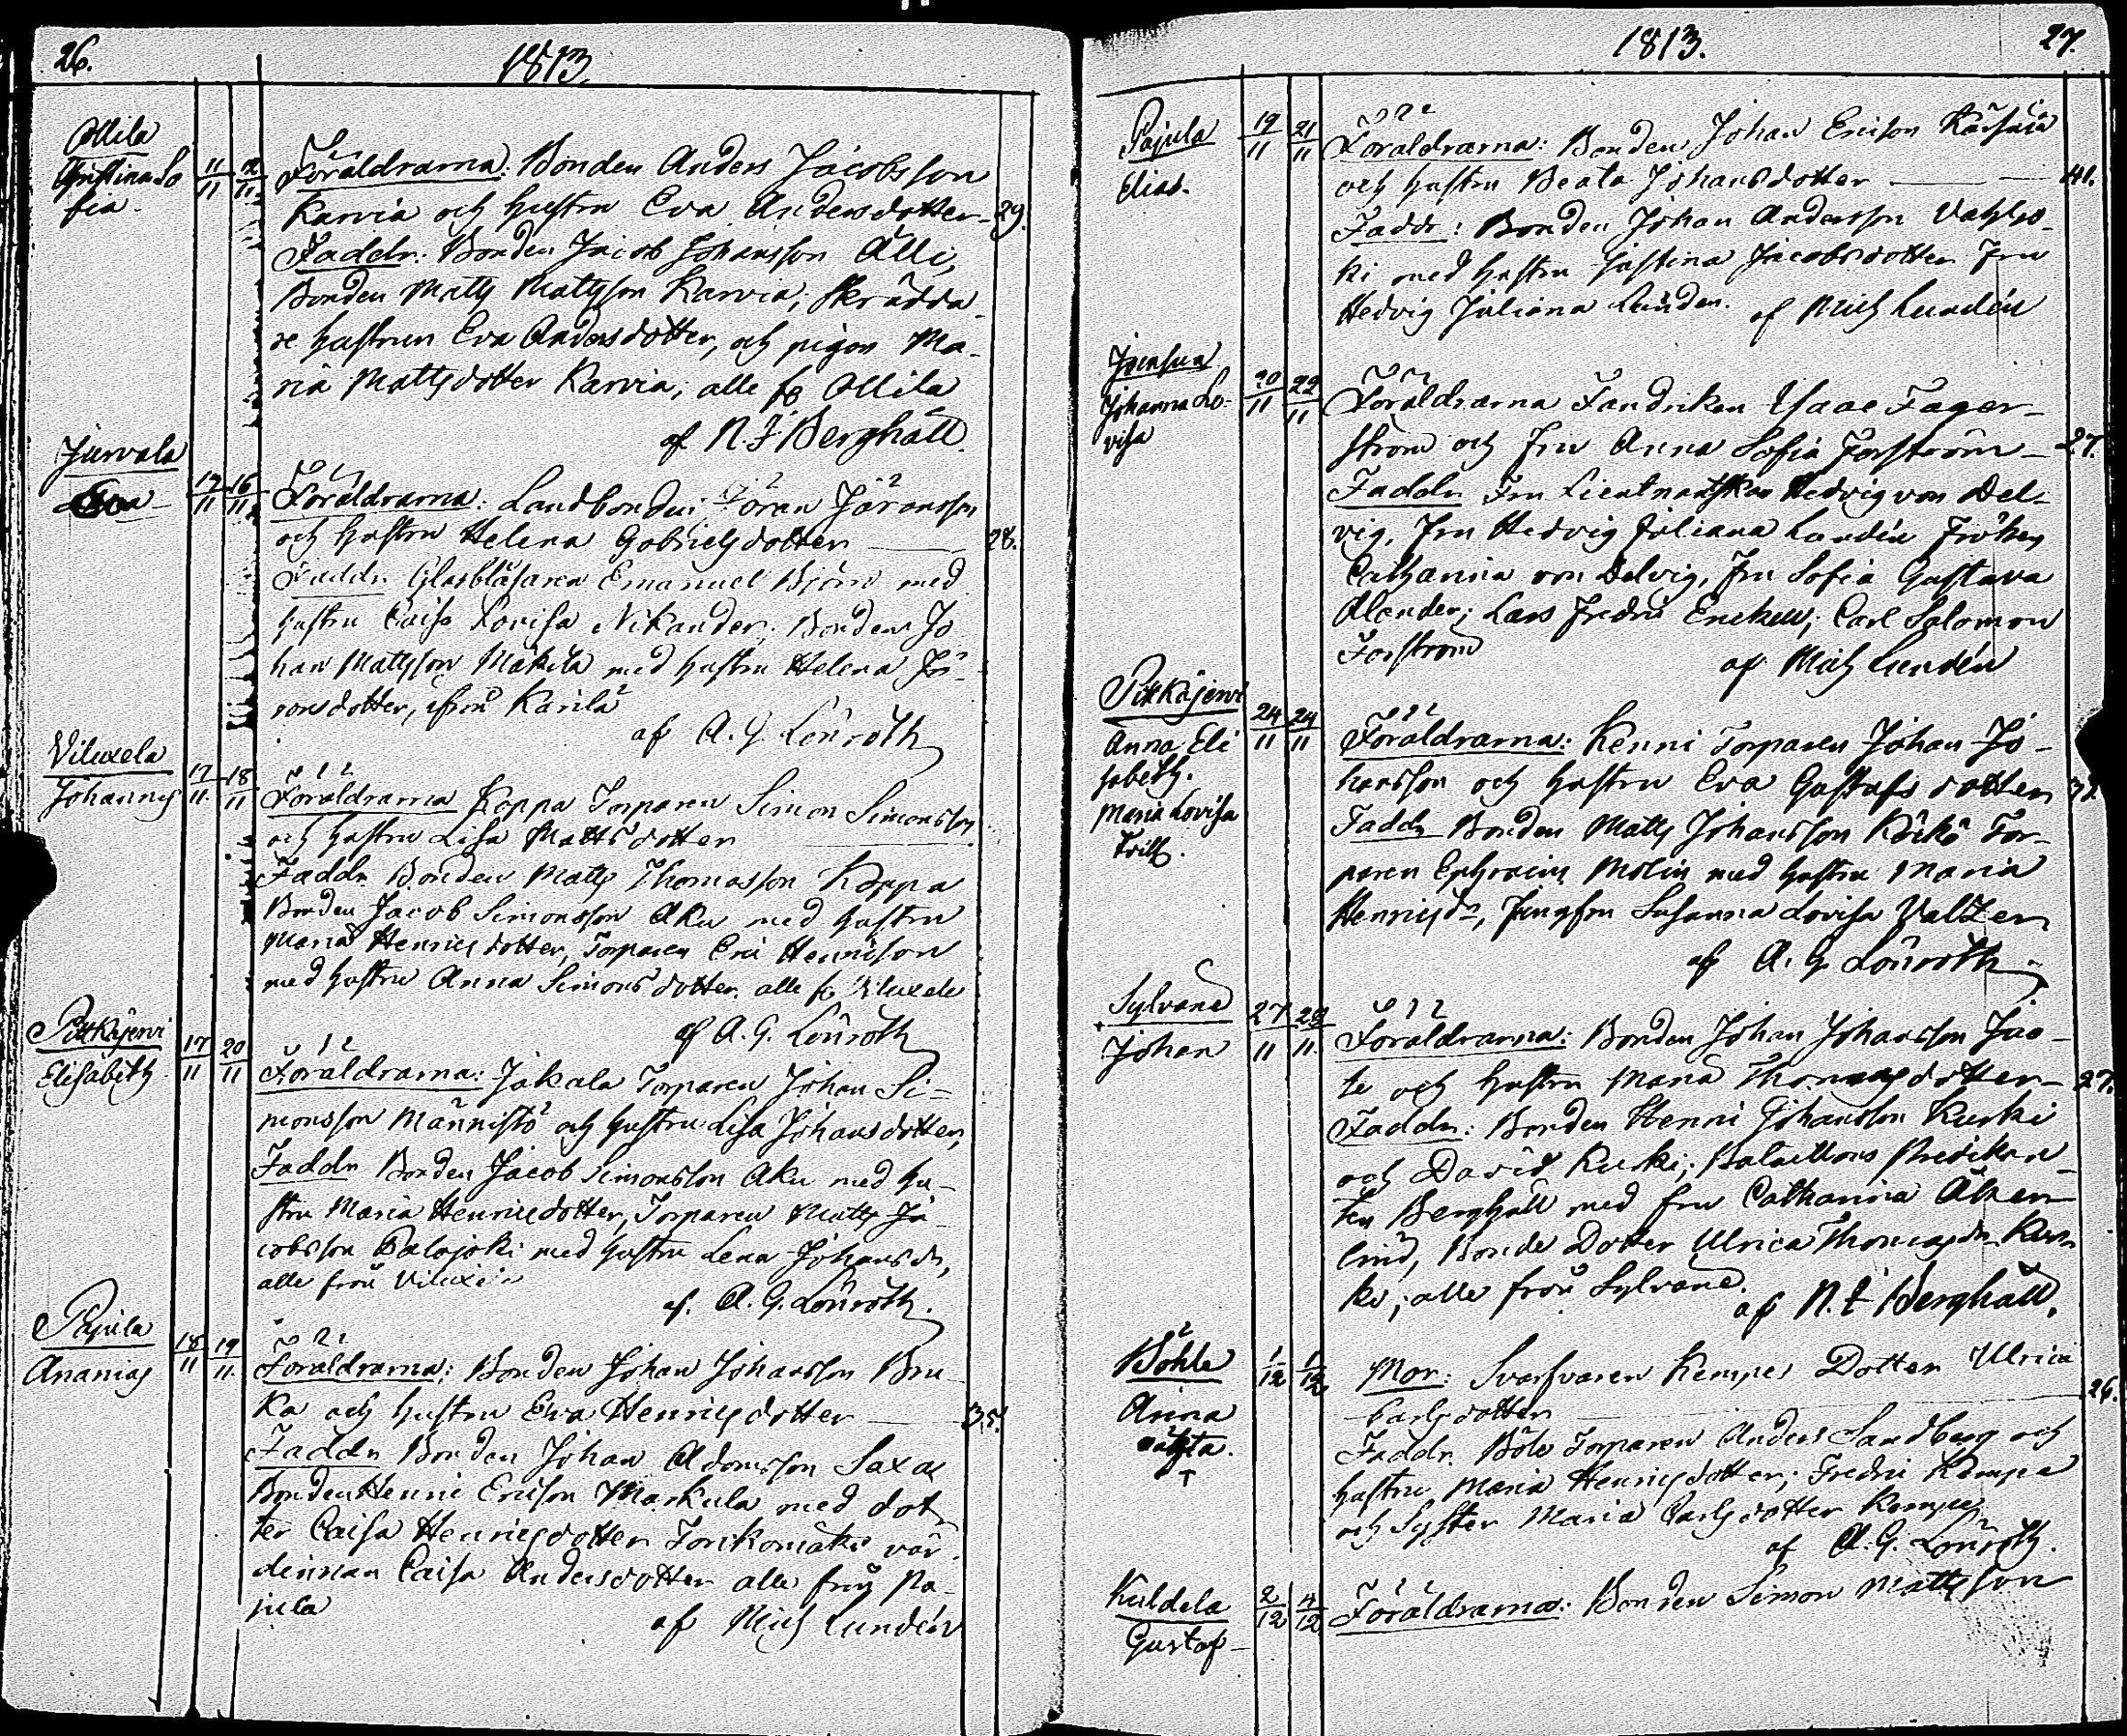 26.
1813.
Ollila
Christina So
fia.
11/11 12/11
Föräldrarna: Bonden Anders Jacobsson
Karvia och hustru Eva Andersdotter - 29.
Faddr: Bonden Jacob Johansson Älli,
Bonden Matts Mattsson Karvia, Skrädda-
re hustrun Eva Andersdotter, och pigan Ma-
ria Mattsdotter Karvia, alle fr Ollila
af N. J. Berghäll.
Jurvala
Eva -
16/11
Föräldrarna: Landbonden Jöran Jöransson
och hustru Helena Gabrielsdotter 28.
Faddr. Glasblåsaren Emanuel Björn med
hustru Caisa Lovisa Nikander, Bonden Jo
han Mattsson Mäkilä med hustru Helena Jö-
ransdotter, ifrån Karilä
af A. G. Lönroth
Viluxela
Johannes
17/11. 18/11
Föräldrarna Koppa Torparen Simon Simonsson
och hustru Lisa Mattsdotter
Faddr. Bonden Matts Thomasson Koppa
Bonden Jacob Simonsson Aku med hustru
Maria Henricsdotter, Torparen Eric Henricson
med hustru Anna Simonsdotter. alle fr Viluxela
af A. G. Lönroth
Pitkäjervi
Elisabeth
17/11 20/11
Föräldrarna: Jakala Torparen Johan Si=
monsson Männistö och hustru Lisa Johansdotter,
Faddr Bonden Jacob Simonsson Aku med hu-
stru Maria Henricsdotter, Torparen Matts Ja
cobsson Palojoki med hustru Lena Johansdr,
alle från
af. A. G. Lönroth.
Pajula
Ananias
18/11 19/11.
Föräldrarna: Bonden Johan Johansson Bru
ka och hustru Eva Henricsdotter 35.
Faddr Bonden Johan Adamsson Saxa
Bonden Henric Ericson Markula med dot
ter Caisa Henricsdotter vär
dinnan Caisa Andersdotter alle från Pa-
jula
af Mich Lundén
1813. 27.
Pajula
Elias.
19/11 21/11
Föräldrarna: Bonden Johan Ericson
och hustru Beata Johansdotter 41.
Faddr: Bonden Johan Andersson
ki med hustru Justina Jacobsdotter Fru
Hedvig Juliana Lundén. af Mich Lundén
Johanna Lo-
visa
20/11 22/11
Föräldrarna Fändriken Isaac Fager-
ström och fru Anna Sofia Forsström - 27.
Faddr Fru Lieutnantskan Hedvig von Del-
vig, Fru Hedvig Juliana Lundén Fröken
Catharina von Delvig, Fru Sofia Gustava
Alander, Lars Fredric Enckell, Carl Salomon
Forsström
af Mich Lundén
Pitkäjervi
Anna Eli
sabeth.
Maria Lovisa
Trill.
24/11 24/11
Föräldrarna: Kenni Torparen Johan Jo-
hansson och hustru Eva Gustafsdotter
Faddr Bonden Matts Johansson Tor-
paren Ephraim Molin med hustru Maria
Henricsdr, Jungfru Susanna Lovisa Valzer
af A. G. Lönroth
Sylvane
Johan
27/11 28/11.
Föräldrarna: Bonden Johan Johansson
te och hustru Maria Thomasdotter - 27.
Faddr: Bonden Henric Johansson Kuski
och David Kuski, Bataillons Predikan-
ten Berghäll med fru Catharina Åker
lind, Bonde Dotter Ulrica Thomasdr Kus
ki, alle från Sylvane.
af N. J. Berghäll.
Böhle
Anna
oäkta.
†
1/12 1/12
Mor: Svarfvaren Kempes Dotter Ulrica
Carlsdotter 26.
Faddr. Böle Torparen Anders Sandberg och
hustru Maria Henricsdotter, Fredric Kempe
och Syster Maria Carlsdotter Kempe
af A. G. Lönroth.
Kuldela
Gustaf -
2/12 4/12
Föräldrarna: Bonden Simon Mattsson